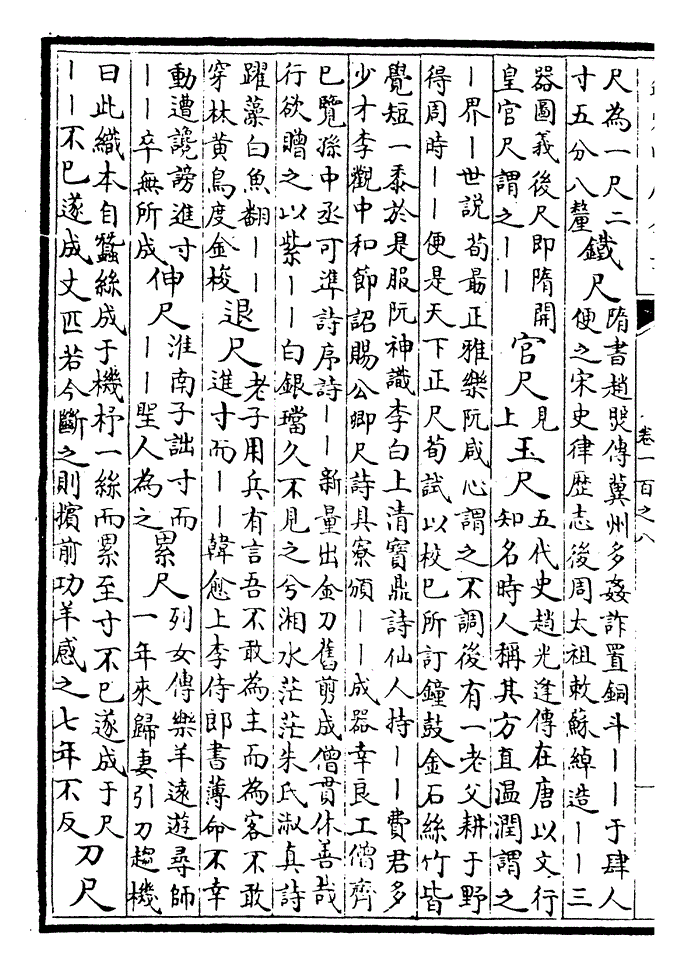 尺為一尺二
寸五分八釐
鐵尺
隋書趙煚傳冀州多姦詐置銅斗——于肆人
便之宋史律歷志後周太祖敕蘇綽造——三
器圖義後尺即隋開
皇官尺謂之——
官尺
見
上
玉尺
五代史趙光逢傳在唐以文行
知名時人稱其方直温潤謂之
—界—世說荀朂正雅樂阮咸心謂之不調後有一老父耕于野
得周時——便是天下正尺荀試以校巳所訂鐘鼓金石絲竹皆
覺短一黍於是服阮神識李白上清寶鼎詩仙人持——費君多
少才李觀中和節詔賜公卿尺詩具寮頒——成器幸良工僧齊
巳覽孫中丞可準詩序詩——新量出金刀舊剪成僧貫休善哉
行欲贈之以紫——白銀璫久不見之兮湘水茫茫朱氏淑真詩
躍藻白魚翻——
穿林黃鳥度金梭
退尺
老子用兵有言吾不敢為主而為客不敢
進寸而——韓愈上李侍郎書薄命不幸
動遭讒謗進寸
——卒無所成
伸尺
淮南子詘寸而
——聖人為之
累尺
列女傳樂羊遠遊尋師
一年來歸妻引刀趨機
曰此織本自蠶絲成于機杼一絲而累至寸不巳遂成于尺
——不巳遂成丈匹若今斷之則擯前功羊感之七年不反
刀尺
卷一百之八